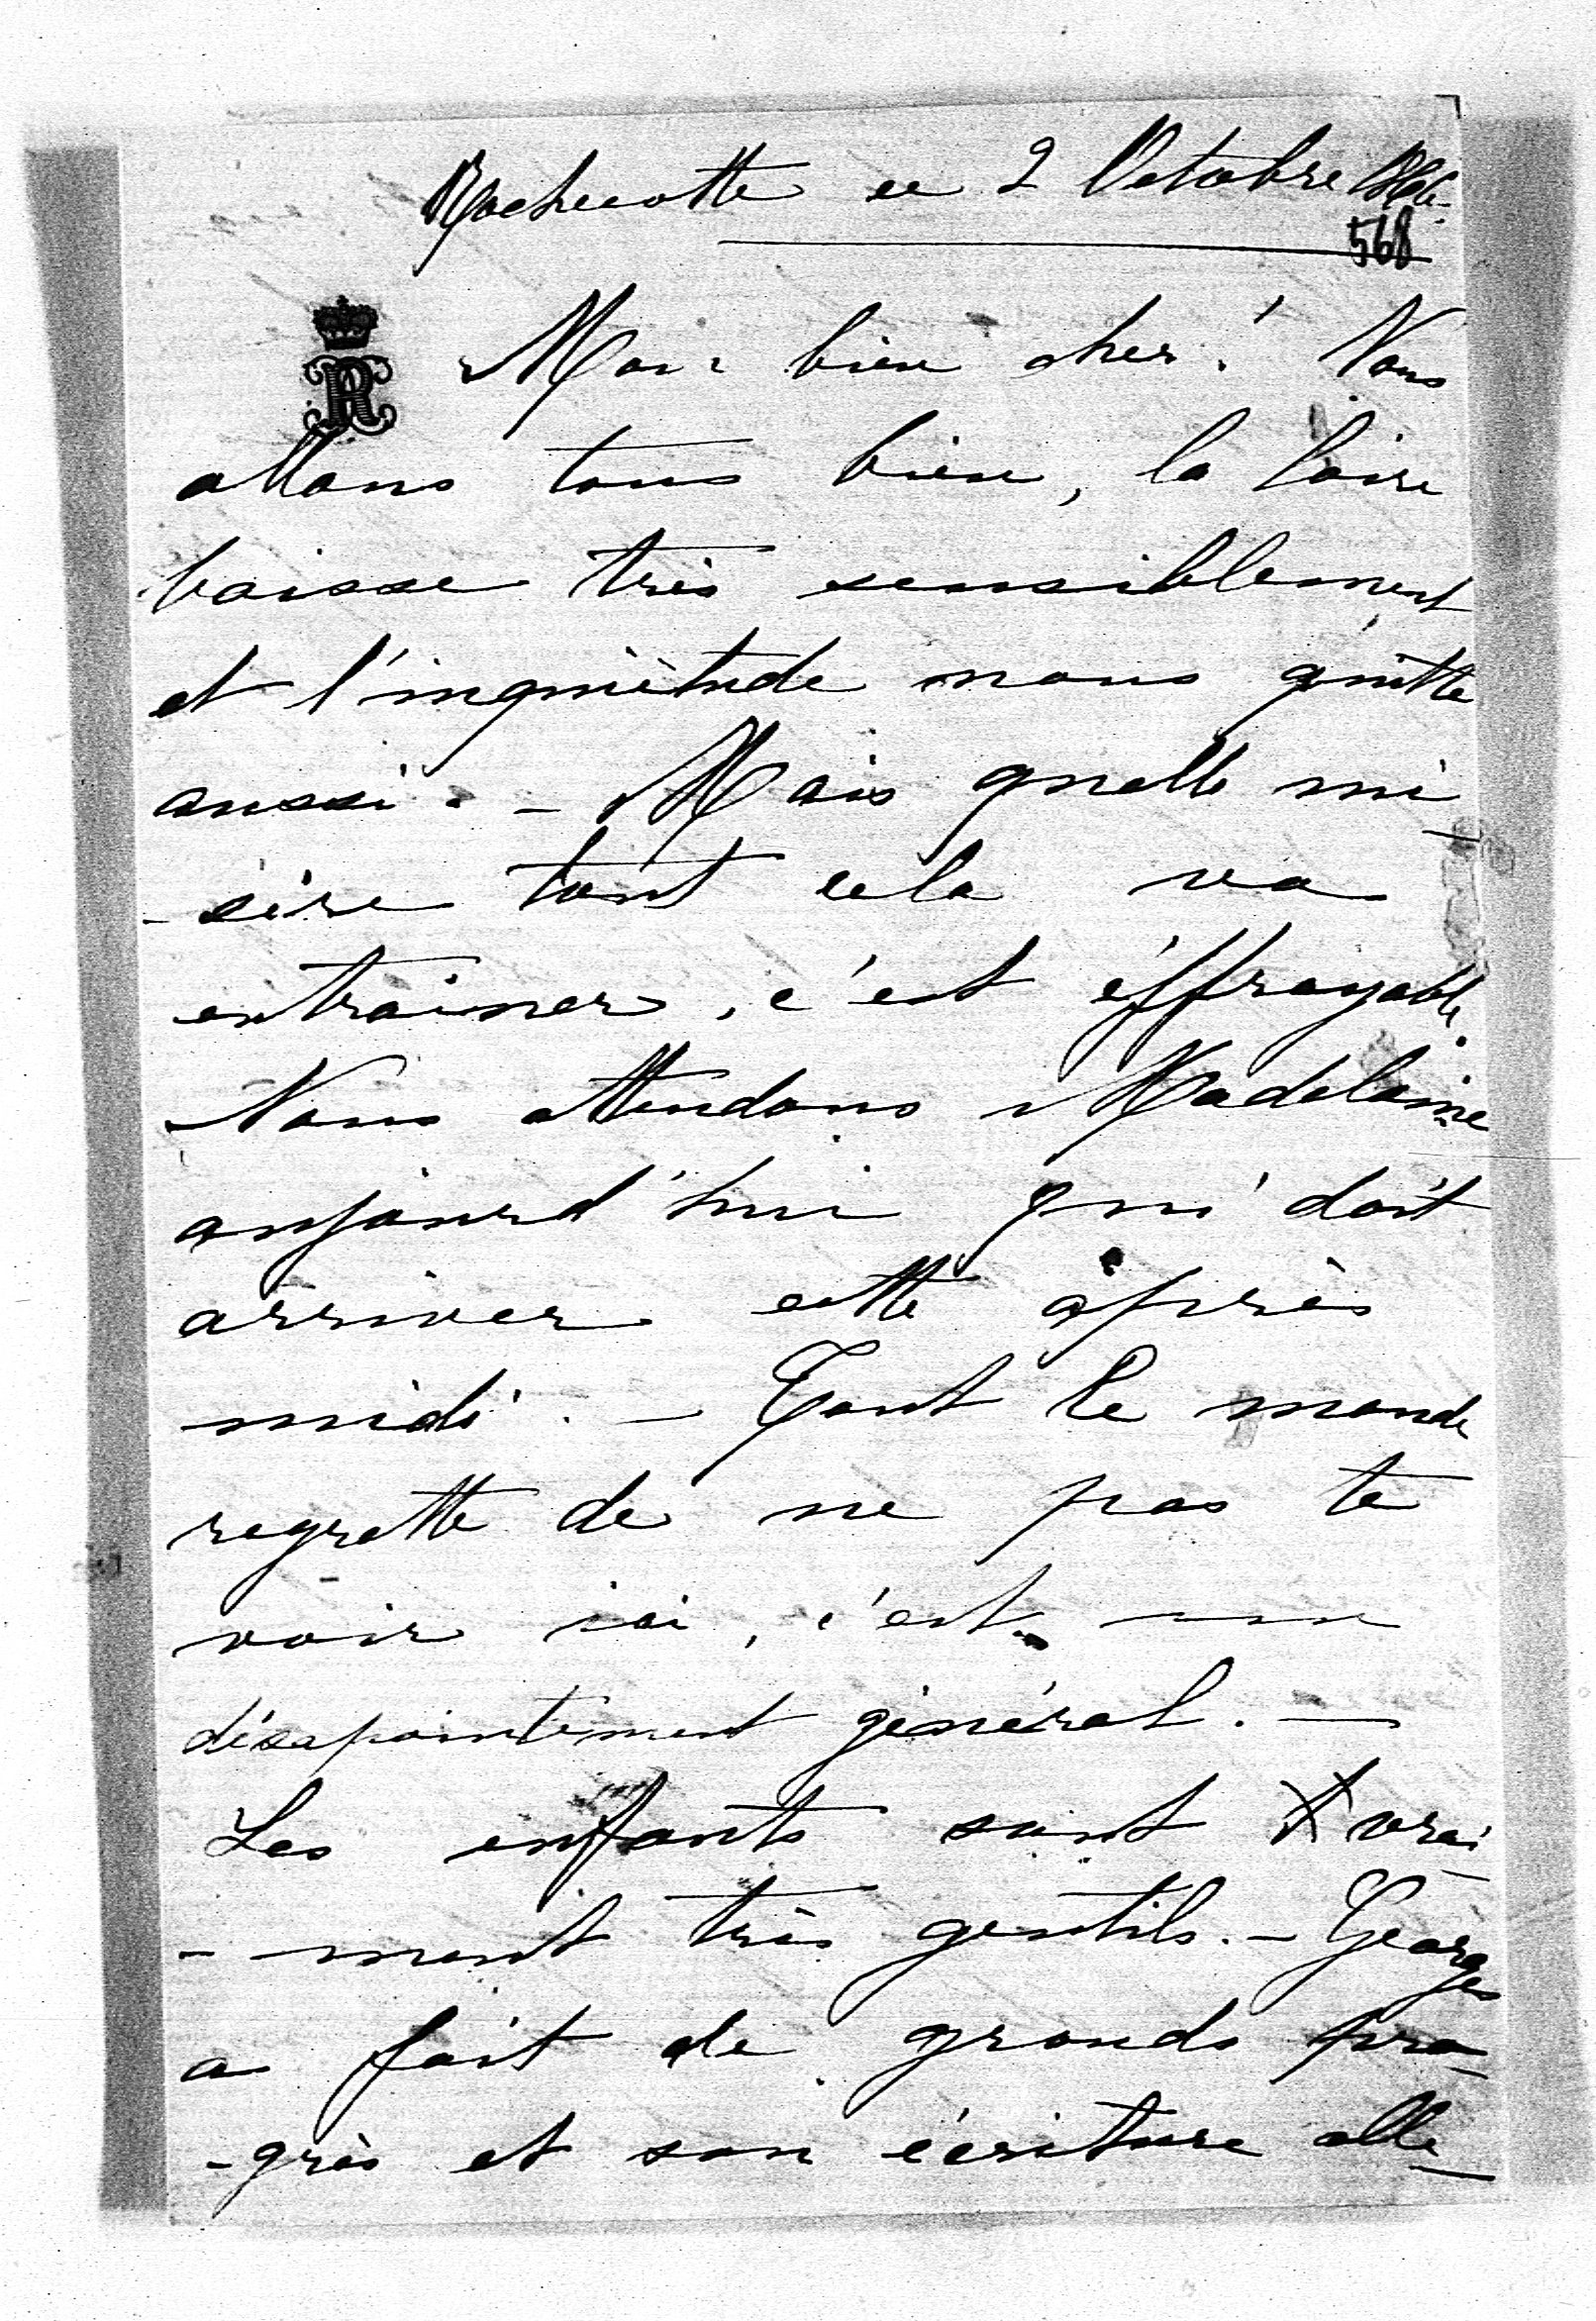 Rochecotte ce 2 Octobre 1866.
568
R
Mon bien cher! Nous
allons tous bien, la Loire
baisse très sensiblement
et l'inquiètude nous quitte
aussi. - Mais quelle mi-
-sère tout cela va
entrainer, c'est éffrayable.
Nous attendons Madelaine
aujourd'hui qui doit
arriver cette après
midi. - Tout le monde
regrette de ne pas te
voir ici, c'est un
désapointement général. -
Les enfants sont vrai-
-ment très gentils. - Georges
a fait de grands pro-
-grès et son écriture alle-